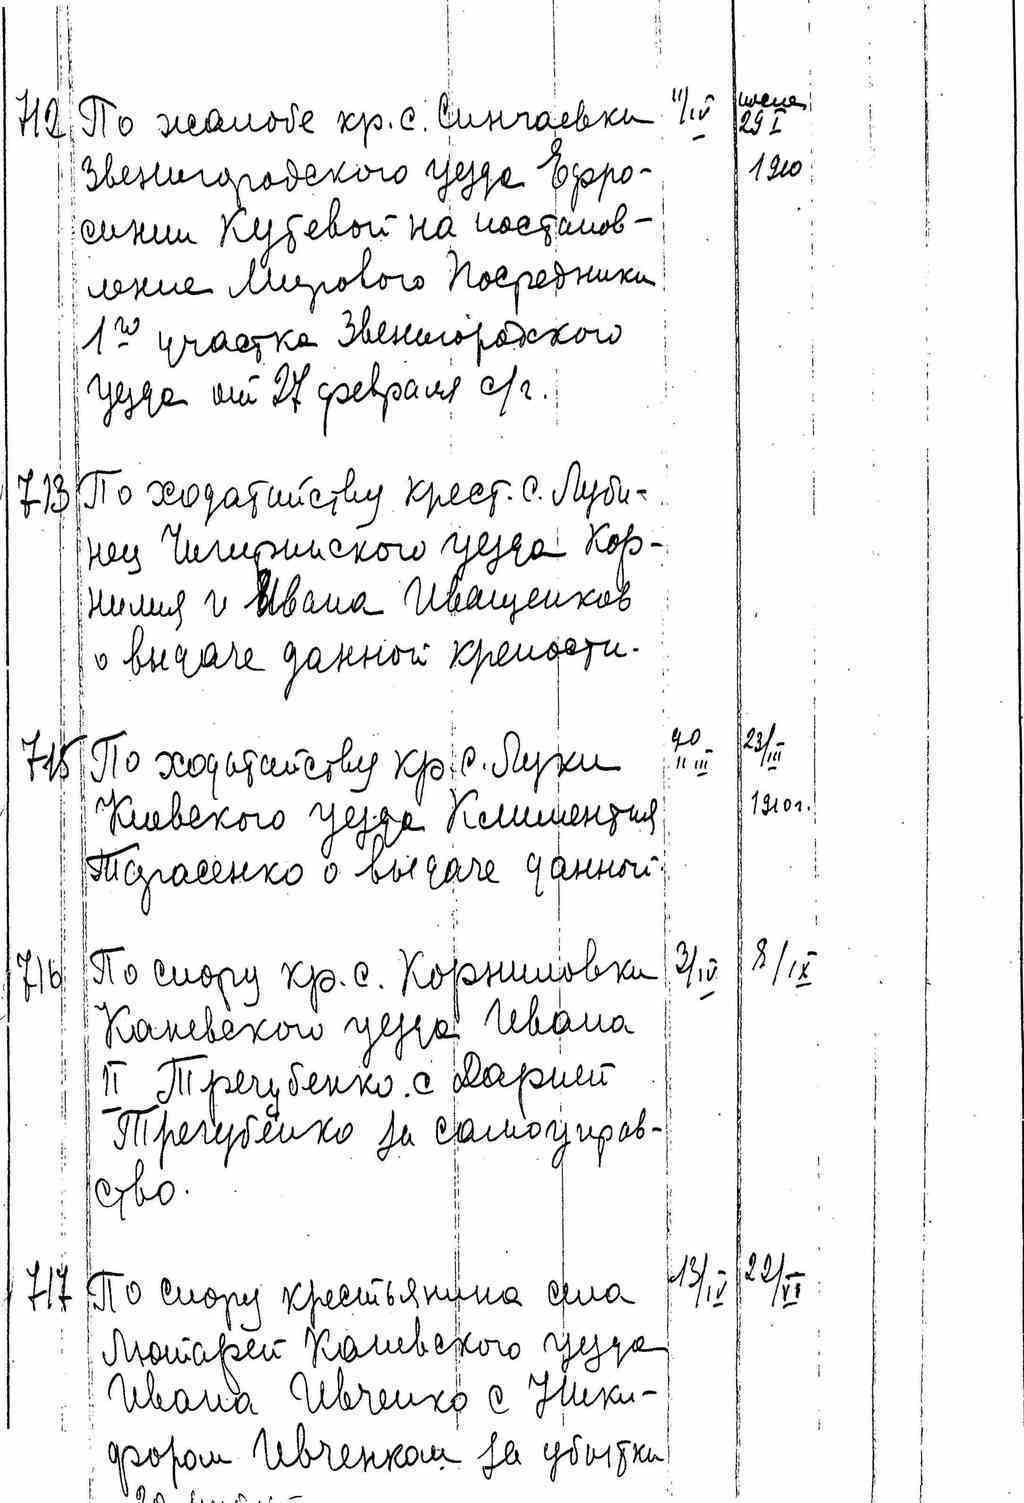 712 По жалобе кр. с. Синчаевки 11/IV июня 29 I
Звенигородского уезда Ефро- 1910
синии Кутевой на постанов-
ление Мирового Посредника
1го участка Звенигородского
уезда от 27 февраля с/г.
713 По ходатайству крест. с. Луби-
нец Чигиринского уезда Кор-
нилия и Ивана Иващенков
о выдаче данной крепости.
715 По ходатайству кр. с. Луки 23/III
Киевского уезда Климентия 1910г.
Тарасенко о выдаче данной.
716 По спору кр. с. Корниловки 3/IV 8/IX
Каневского уезда Ивана
II Трегубенко с Дарией
Трегубенко за самоуправ-
ство.
717 По спору крестьянина села 13/IV 22/VI
Лютарей Каневского уезда
Ивана Ивченко с Ники-
фором Ивченком за убытки